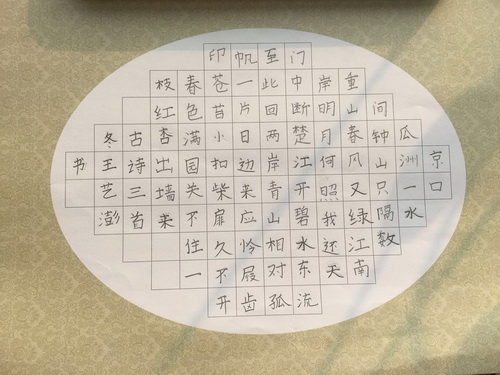 京口
瓜洲一水
间钟山只隔数
重山春风又绿江南
岸明月何照我还天
门中断楚江开碧水东流
至此回两岸青山相对孤
帆一片日边来应怜屐齿
印苍苔小扣柴扉久不开
春色满园关不住一
枝红杏出墙来
古诗三首
冬王艺澎
书